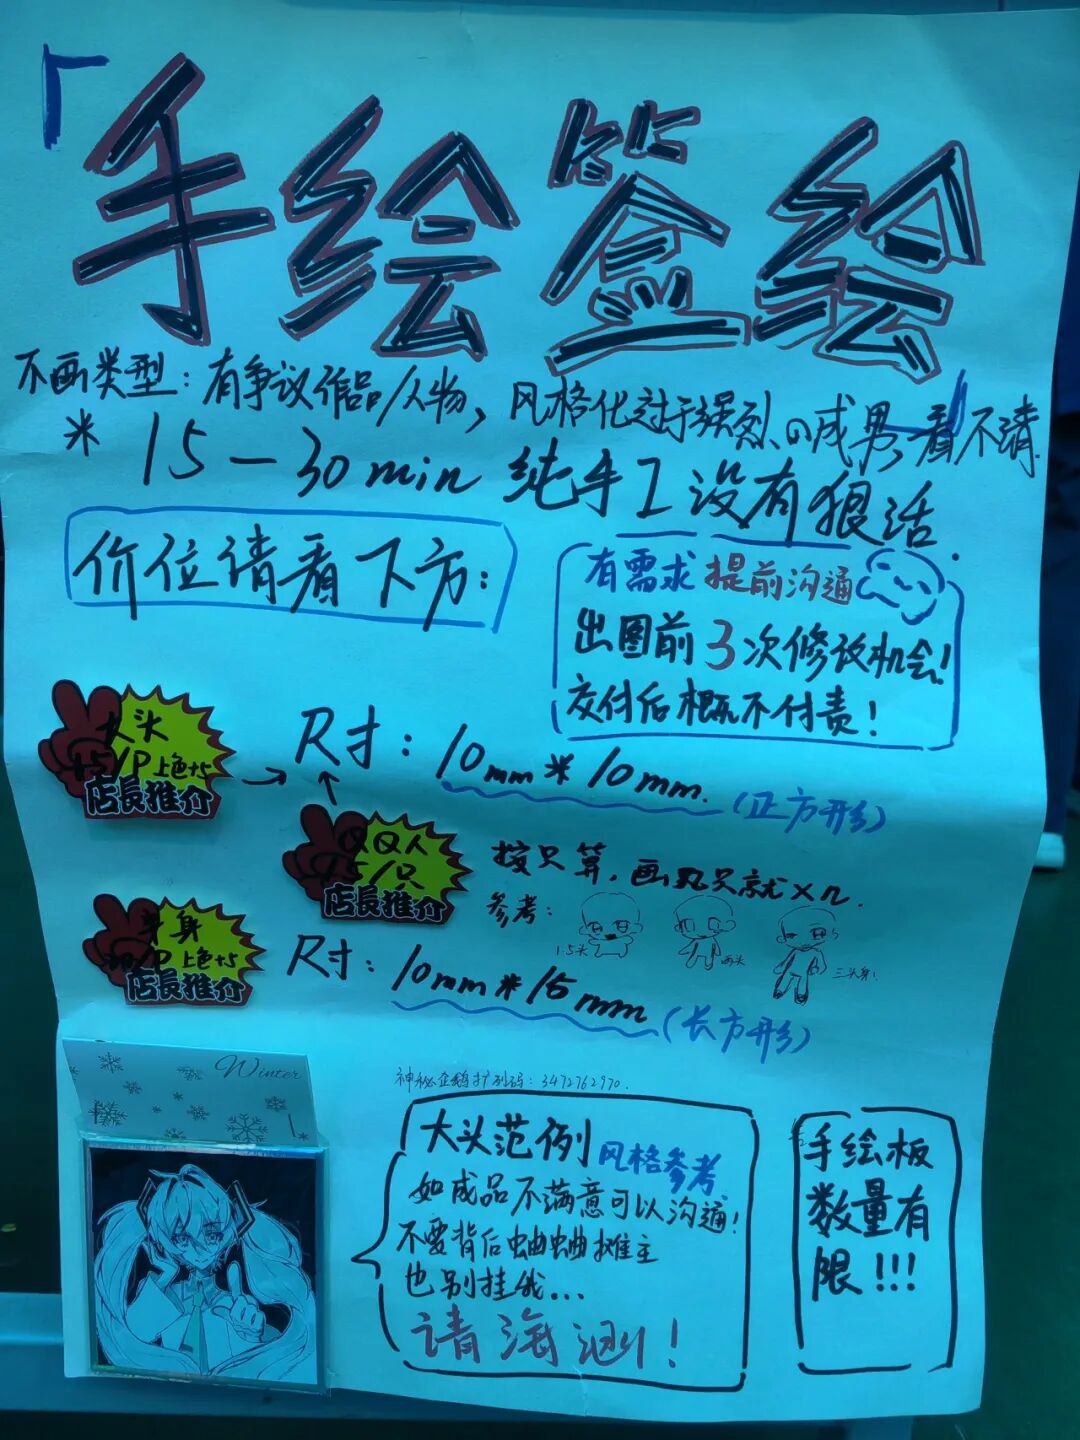 「手绘签绘」
不画类型：有争议作品/人物，风格化过于强烈、の成男，看不清
* 15-30min 纯手工没有狠活.
价位请看下方：
有需求 提前沟通
出图前 3次修改机会！
交付后概不付责！
大头
45/P 上色+5
店長推介
→ 尺寸：10mm*10mm.（正方形）
QQ人
45/只
店長推介
按只算，画几只就×几.
参考：
1.5头
两头
三头身！
半身
/P 上色+5
店長推介
尺寸：10mm*15mm（长方形）
Winter
神秘企鹅扩列码：3472762970.
大头范例 风格参考
如成品不满意可以沟通！
不要背后蛐蛐摊主
也别挂我...
请海涵！
手绘板
数量有
限!!!